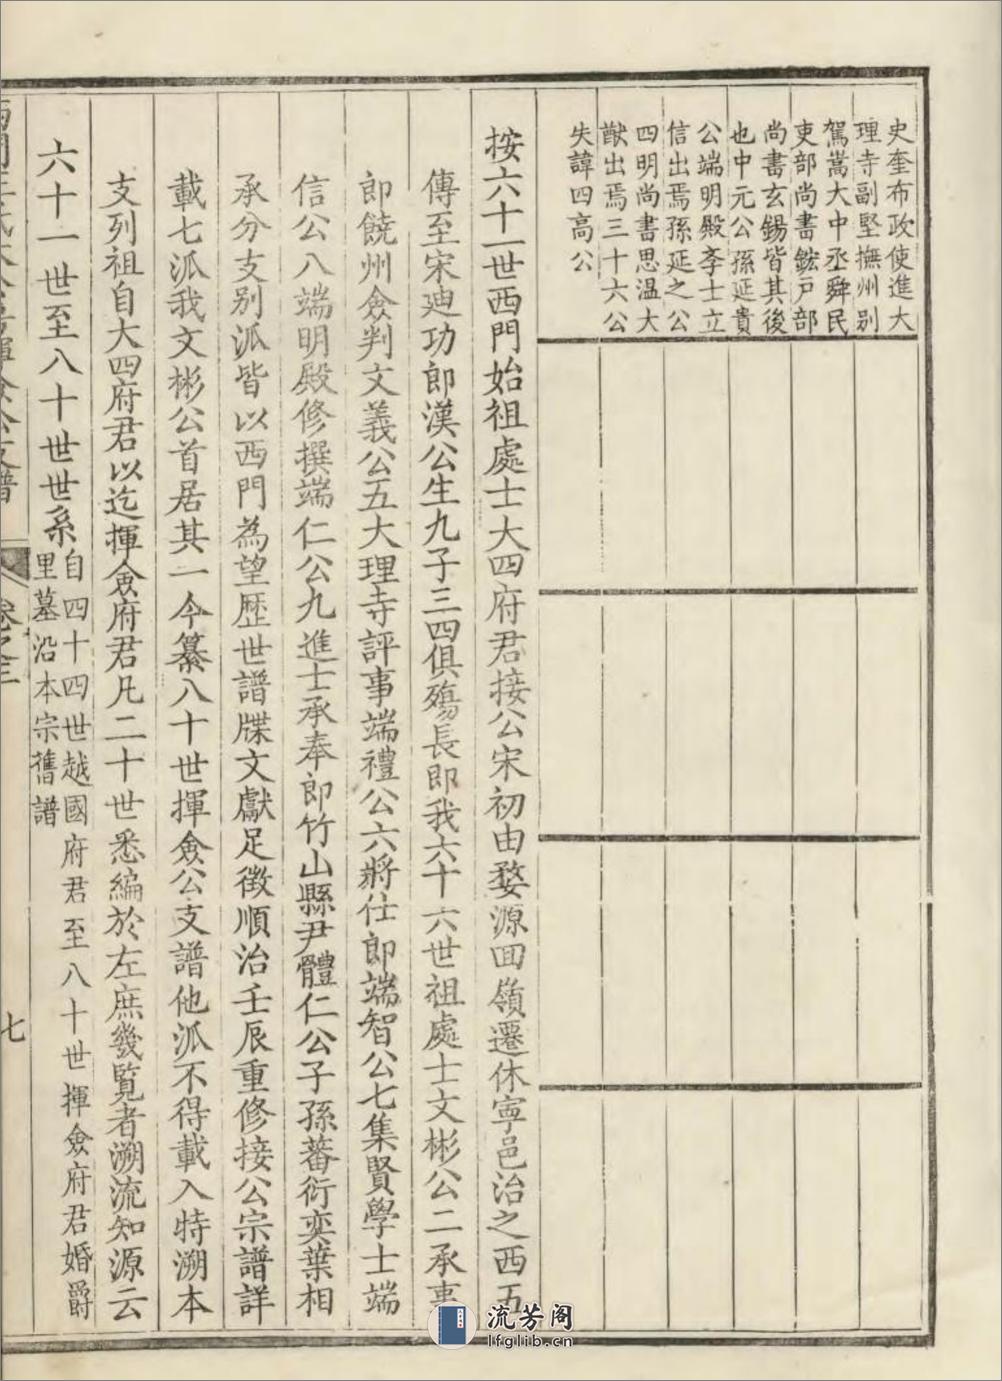 史奎布政使進大
理寺副堅撫州别
駕嵩大中丞舜民
吏部尚書鋐戸部
尚書玄錫皆其後
也中元公孫延貴
公端明殿李士立
信出焉孫延之公
四明尚書思温大
猷出焉三十六公
失諱四高公
按六十一世西門始祖處士大四府君接公宋初由婺源回嶺遷休寧邑治之西五
傳至宋廸功郎漢公生九子三四俱殤長即我六十六世祖處士文彬公二承事
郎饒州僉判文義公五大理寺評事端禮公六將仕郎端智公七集賢學士端
信公八端明殿修撰端仁公九進士承奉郎竹山縣尹體仁公子孫蕃衍奕葉相
承分支别派皆以西門為望歷世譜牒文獻足徵順治壬辰重修接公宗譜詳
載七派我文彬公首居其一今纂八十世揮僉公支譜他派不得載入特溯本
支列祖自大四府君以迄揮僉府君凡二十世悉編於左庶幾覽者溯流知源云
六十一世至八十世世系
自四十四世越國府君至八十世揮僉府君婚爵
里墓沿本宗舊譜
卷之三
七
流芳阁
lfglib.cn